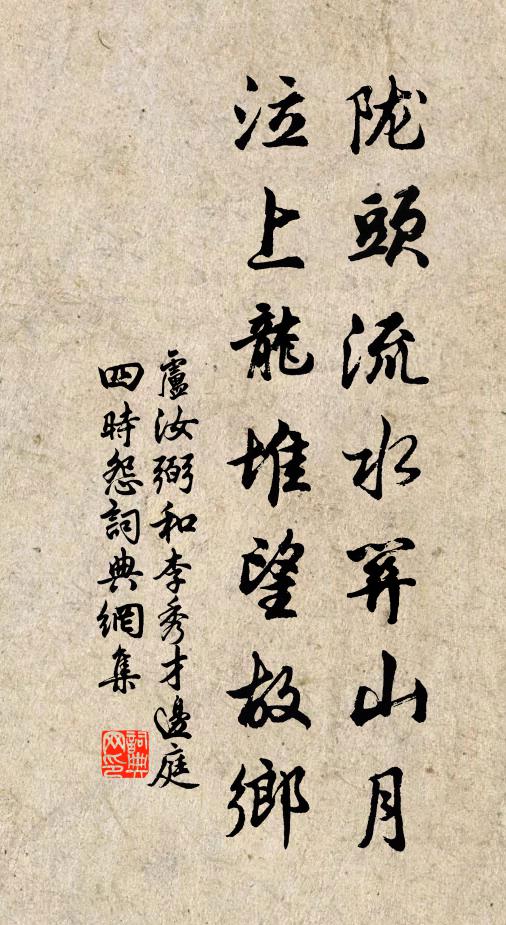 陇頭流水關山月
泣上龍堆望故鄉
盧汝弼和李秀才邊庭
四時怨詞典網集
詞典網印